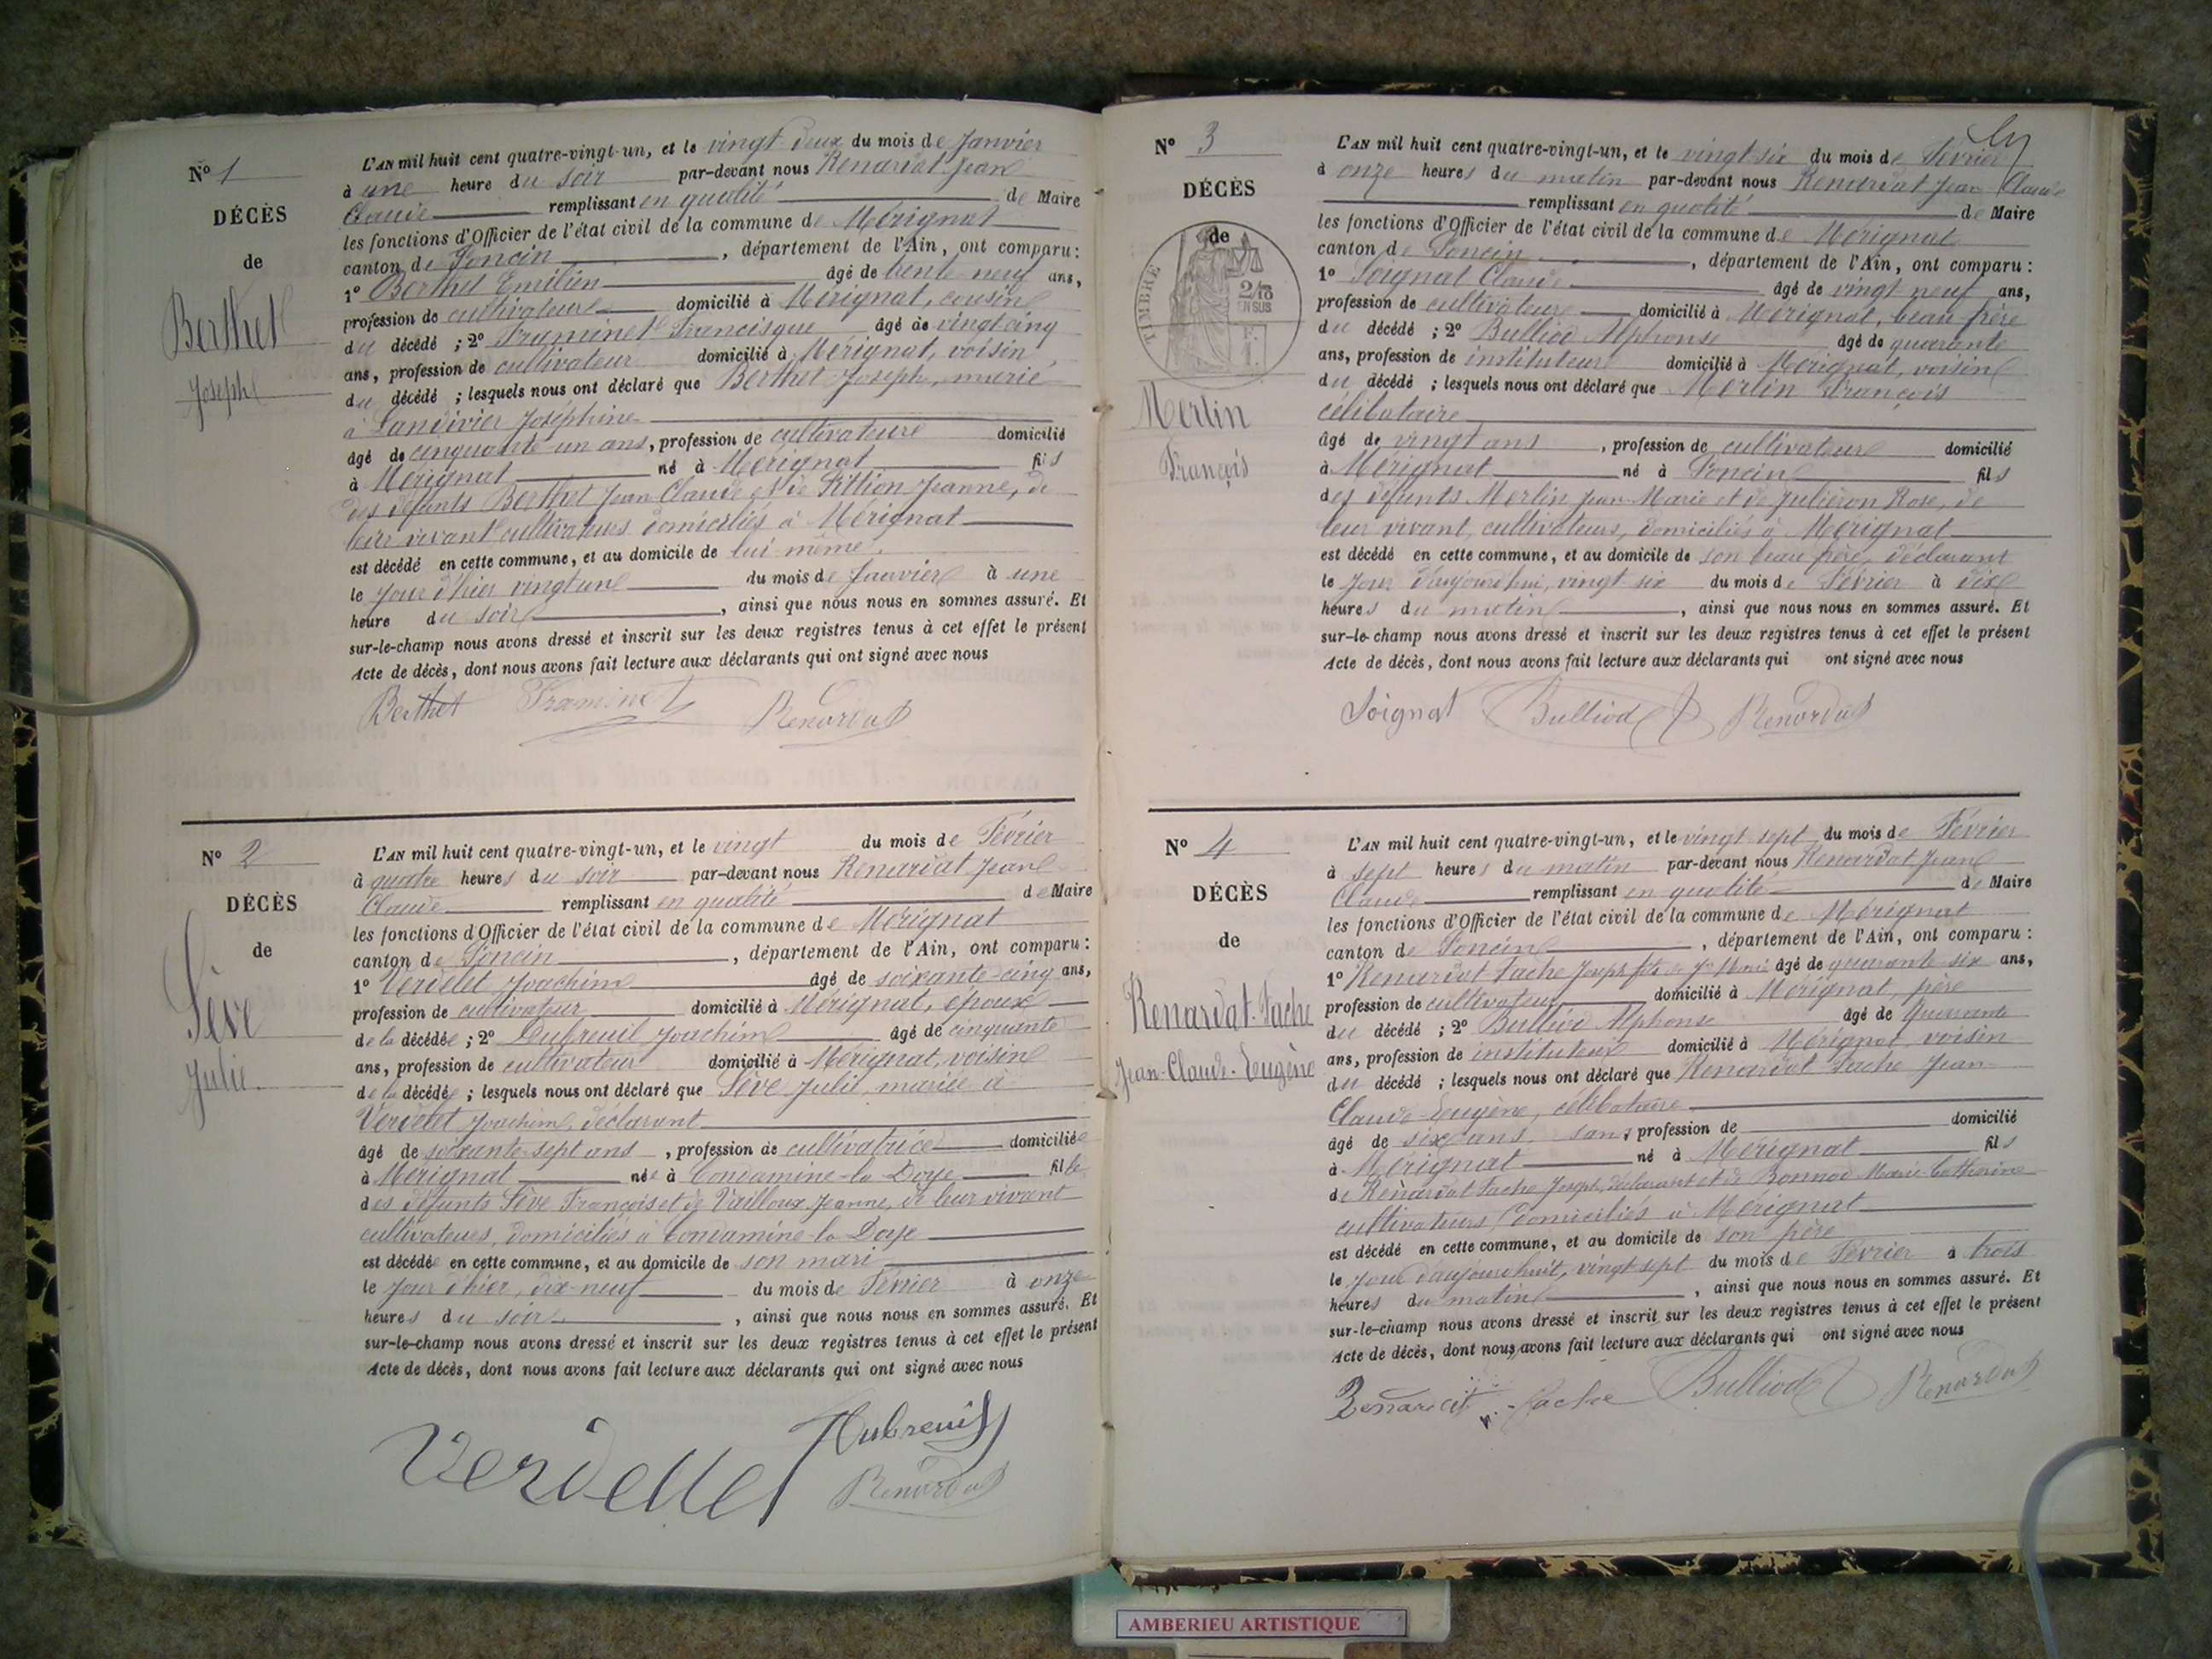 N° 1
DÉCÈS
de
Berthet
Joseph
L'AN mil huit cent quatre-vingt-un, et le vingt deux du mois de Janvier
à une heure du soir par-devant nous Renardat Jean
Claude remplissant en qualité de Maire
les fonctions d'Officier de l'état civil de la commune de Mérignat
canton de Poncin, département de l'Ain, ont comparu :
1° Berthet Emilien âgé de trente neuf ans,
profession de cultivateur domicilié à Mérignat, cousin
du décédé ; 2° Framinet Francisque âgé de vingt cinq
ans, profession de cultivateur domicilié à Mérignat, voisin
du décédé ; lesquels nous ont déclaré que Berthet Joseph, marié
à Landivier Joséphine
âgé de cinquante un ans, profession de cultivateur domicilié
à Mérignat né à Mérignat fils
des défunts Berthet Jean Claude et de Jeanne, de
leur vivant cultivateurs domiciliés à Mérignat
est décédé en cette commune, et au domicile de lui même,
le jour d'hier vingt un du mois de Janvier à une
heure du soir, ainsi que nous nous en sommes assuré. Et
sur-le-champ nous avons dressé et inscrit sur les deux registres tenus à cet effet le présent
Acte de décès, dont nous avons fait lecture aux déclarants qui ont signé avec nous
Berthet Framinet Renardat
N° 2
DÉCÈS
de
Sève
Julie
L'AN mil huit cent quatre-vingt-un, et le vingt du mois de Février
à quatre heures du soir par-devant nous Renardat Jean
Claude remplissant en qualité de Maire
les fonctions d'Officier de l'état civil de la commune de Mérignat
canton de Poncin, département de l'Ain, ont comparu :
1° Verdelet Joachim âgé de soixante-cinq ans,
profession de cultivateur domicilié à Mérignat, époux
de la décédée ; 2° Dubreuil Joachim âgé de cinquante
ans, profession de cultivateur domicilié à Mérignat, voisin
de la décédée ; lesquels nous ont déclaré que Sève Julie, mariée à
Verdelet Joachim, déclarant
âgé de soixante-sept ans, profession de cultivatrice domiciliée
à Mérignat née à Condamine-la-Doye fille
des défunts Sève François et de Vailloux Jeanne, de leur vivant
cultivateurs, domiciliés à Condamine-la-Doye
est décédée en cette commune, et au domicile de son mari
le jour d'hier, dix-neuf du mois de Février à onze
heures du soir, ainsi que nous nous en sommes assuré. Et
sur-le-champ nous avons dressé et inscrit sur les deux registres tenus à cet effet le présent
Acte de décès, dont nous avons fait lecture aux déclarants qui ont signé avec nous
Verdellet Dubreuil
Renardat
N° 3
DÉCÈS
de
TIMBRE
Merlin
François
L'AN mil huit cent quatre-vingt-un, et le vingt six du mois de Février
à onze heures du matin par-devant nous Renardat Jean Claude
remplissant en qualité de Maire
les fonctions d'Officier de l'état civil de la commune de Mérignat
canton de Poncin, département de l'Ain, ont comparu :
1° Soignat Claude âgé de vingt neuf ans,
profession de cultivateur domicilié à Mérignat, beau frère
du décédé ; 2° Bulliod Alphonse âgé de quarante
ans, profession de instituteur domicilié à Mérignat, voisin
du décédé ; lesquels nous ont déclaré que Merlin François
célibataire
âgé de vingt ans, profession de cultivateur domicilié
à Mérignat né à Poncin fils
des défunts Merlin Jean-Marie et de Julliéron Rose, de
leur vivant, cultivateurs, domiciliés à Mérignat
est décédé en cette commune, et au domicile de son beau frère, déclarant
le jour d'aujourd'hui, vingt six du mois de Février à dix
heures du matin, ainsi que nous nous en sommes assuré. Et
sur-le-champ nous avons dressé et inscrit sur les deux registres tenus à cet effet le présent
Acte de décès, dont nous avons fait lecture aux déclarants qui ont signé avec nous
Soignat Bulliod Renardat
N° 4
DÉCÈS
de
Renardat-Fache
Jean-Claude-Eugène
L'AN mil huit cent quatre-vingt-un, et le vingt sept du mois de Février
à sept heures du matin par-devant nous Renardat Jean
Claude remplissant en qualité de Maire
les fonctions d'Officier de l'état civil de la commune de Mérignat
canton de Poncin, département de l'Ain, ont comparu :
1° Renardat Fache Joseph fils de Jh Marie âgé de quarante six ans,
profession de cultivateur domicilié à Mérignat, père
du décédé ; 2° Bulliod Alphonse âgé de Quarante
ans, profession de instituteur domicilié à Mérignat, voisin
du décédé ; lesquels nous ont déclaré que Renardat Fache Jean
Claude-Eugène, célibataire
âgé de six ans, sans profession de domicilié
à Mérignat né à Mérignat fils
de Renardat Fache Joseph, déclarant et de Bonnod Marie-Catherine
cultivateurs domiciliés à Mérignat
est décédé en cette commune, et au domicile de son père
le jour d'aujourd'huit, vingt sept du mois de Février à trois
heures du matin, ainsi que nous nous en sommes assuré. Et
sur-le-champ nous avons dressé et inscrit sur les deux registres tenus à cet effet le présent
Acte de décès, dont nous avons fait lecture aux déclarants qui ont signé avec nous
Renardat Fache Bulliod Renardat
AMBERIEU ARTISTIQUE